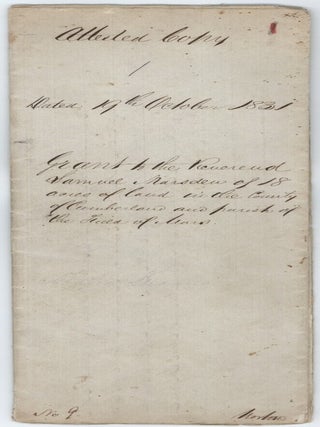 Attested Copy
Dated 19th October 1831
Grant to the Reverend
Samuel Marsden of 18
acres of land in the County
of Cumberland and parish of
the Field of Mars
No 9
Norton